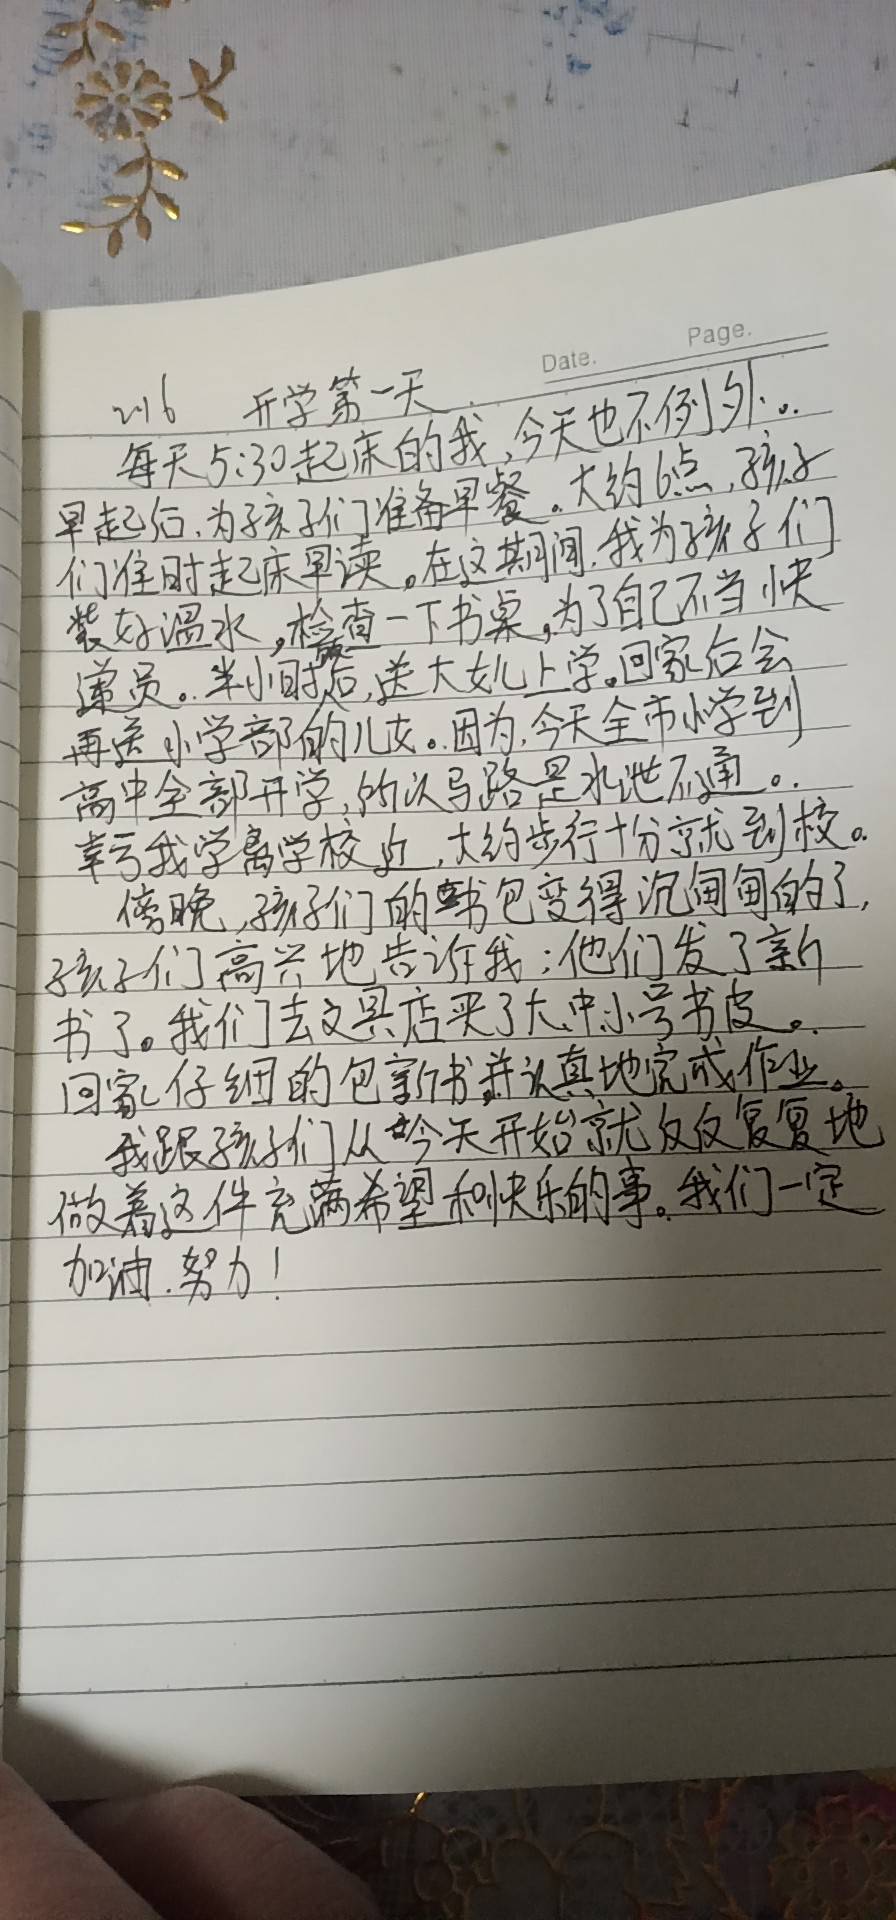 Date. Page.
2.16 开学第一天
每天5:30起床的我,今天也不例外。
早起后,为孩子们准备早餐。大约6点,孩子
们准时起床早读。在这期间,我为孩子们
装好温水,检查一下书桌,为了自己不当快
递员。半小时后,送大女儿上学。回家后会
再送小学部的儿女。因为,今天全市小学到
高中全部开学,的以马路是水泄不通。
幸亏我学离学校近,大约步行十分就到校。
傍晚,孩子们的书包变得沉甸甸的了,
孩子们高兴地告诉我:他们发了新
书了。我们去文具店买了大、中、小号书皮。
回家仔细的包新书并认真地完成作业。
我跟孩子们从今天开始就反反复复地
做着这件充满希望和快乐的事。我们一定
加油.努力!